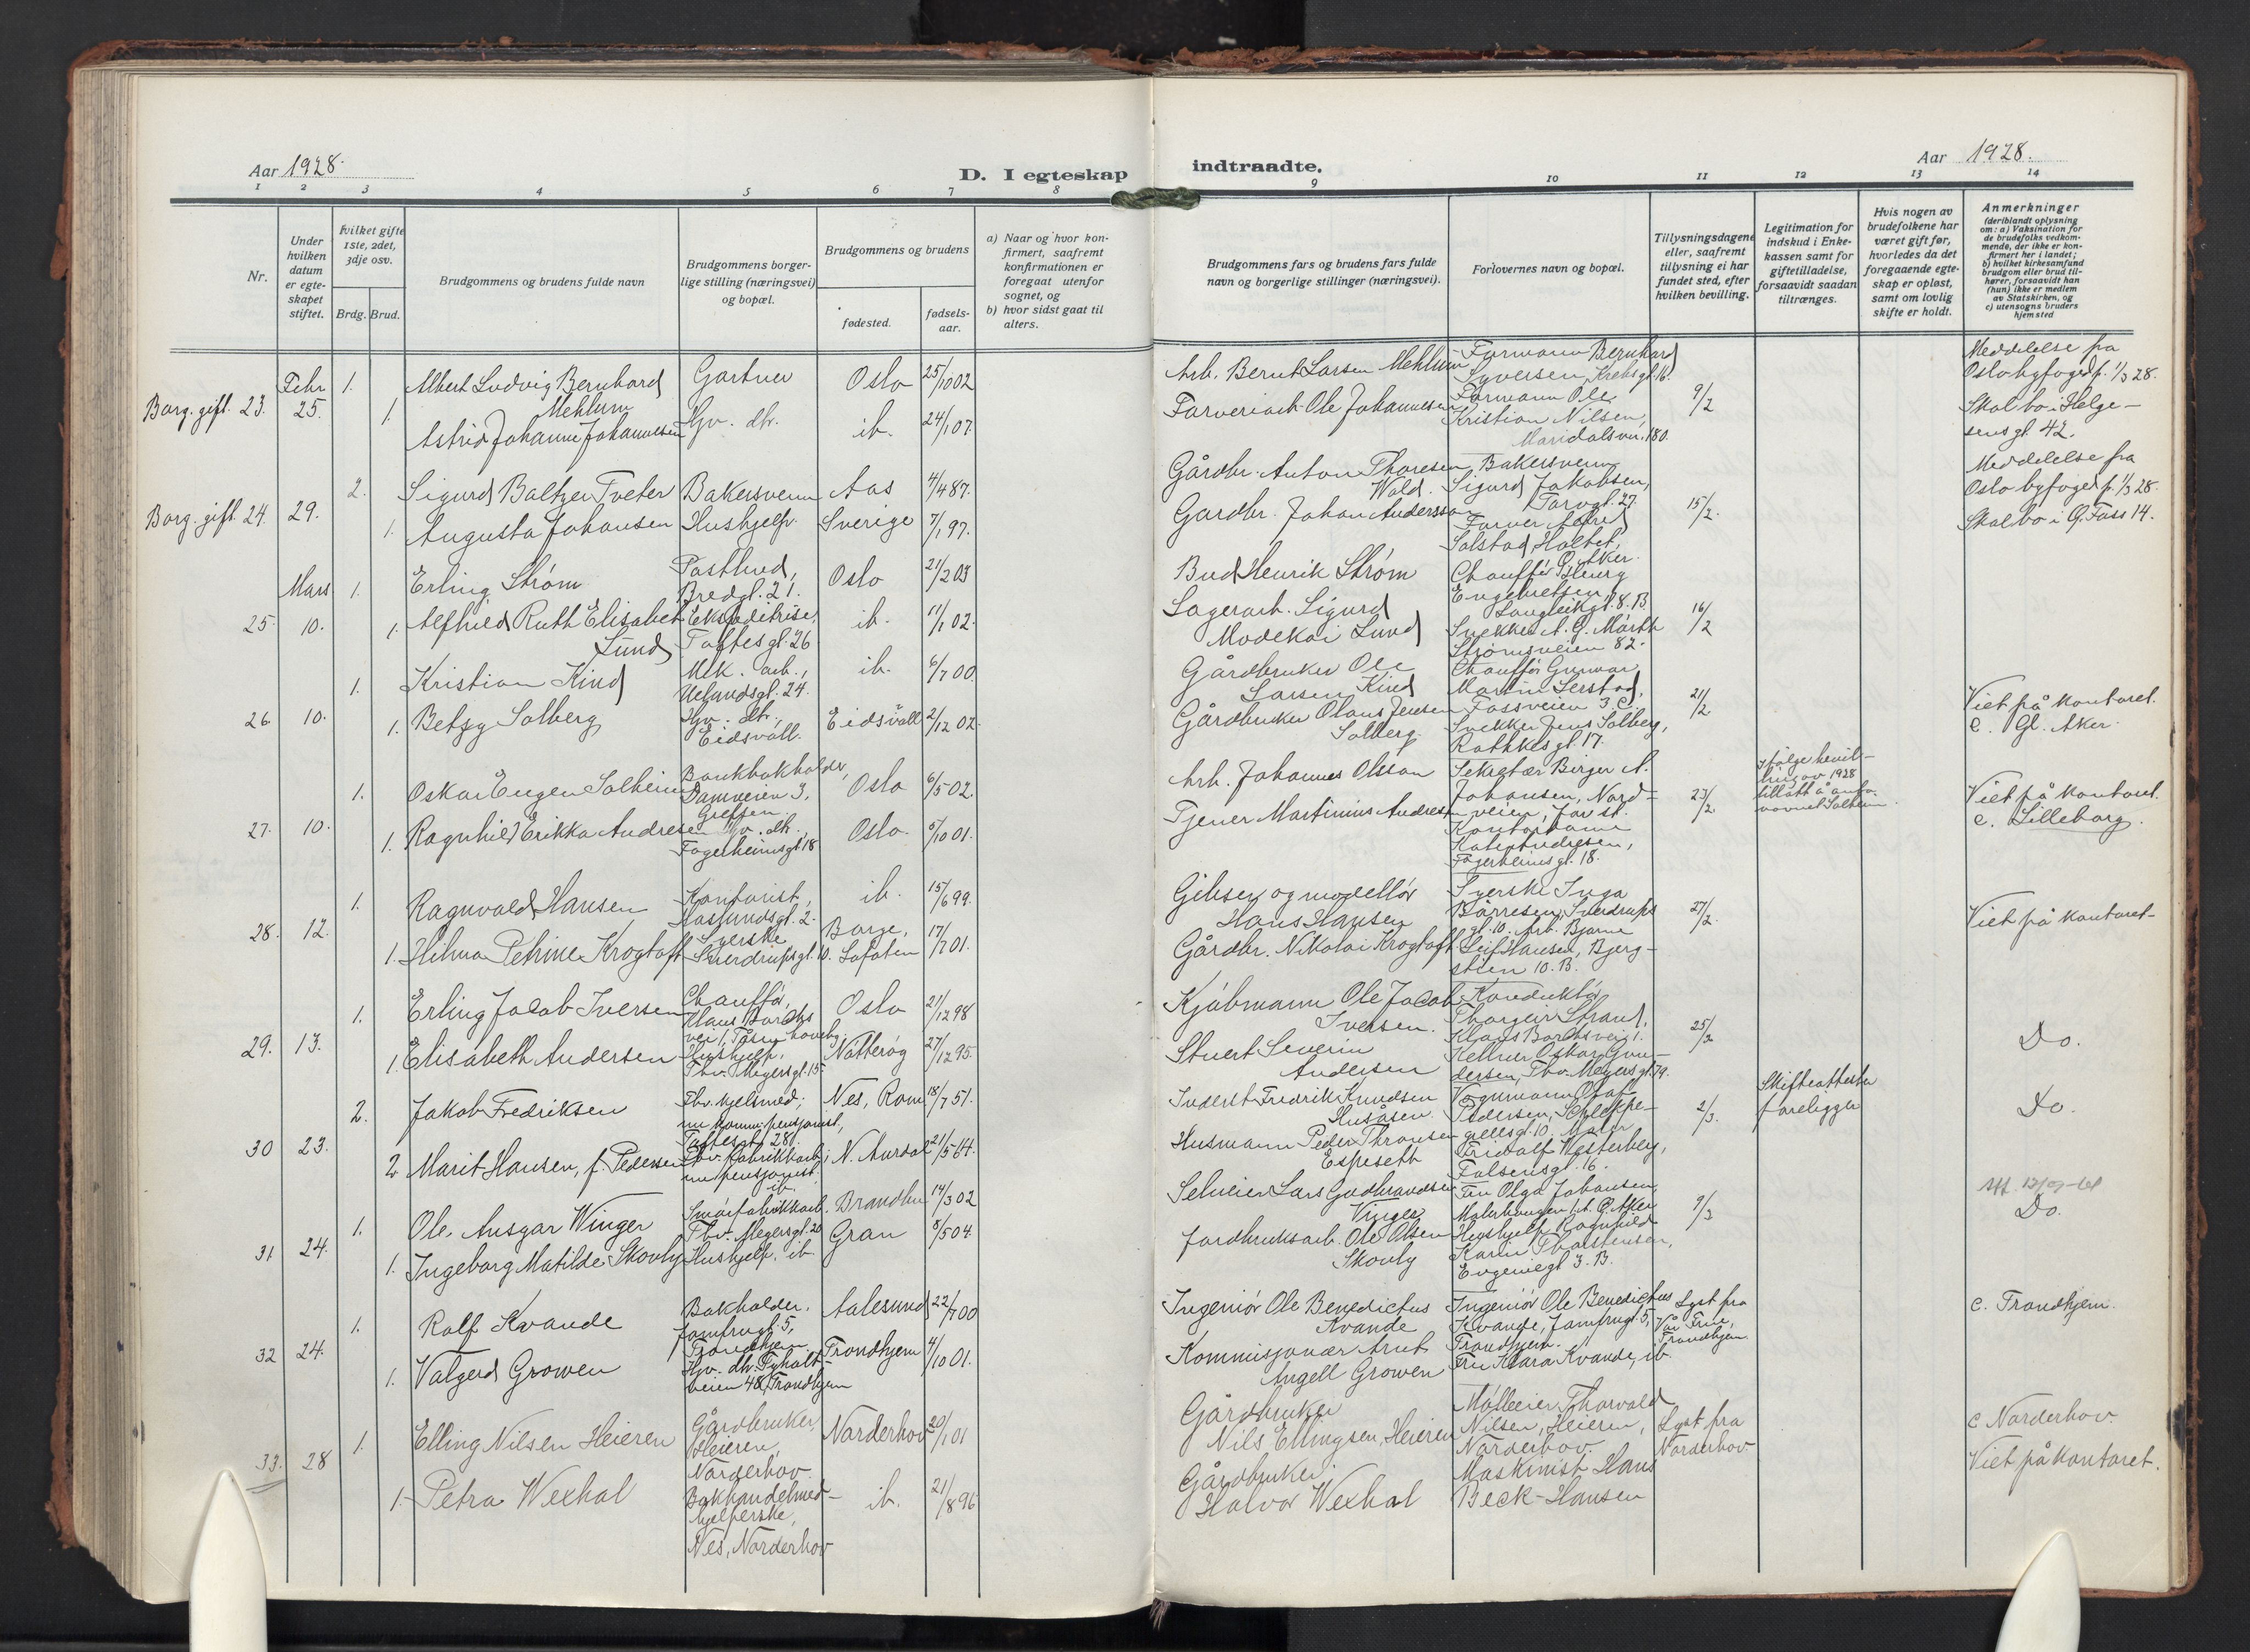 Aar 1928.
D. I egteskap
indtraadte.
Aar 1928.
1 2 3 4 5 6 7 8
9 10 11 12 13 14
Nr.
Under hvilken datum er egteskapet stiftet.
Hvilket gifte 1ste, 2det, 3dje osv.
Brdg. Brud.
Brudgommens og brudens fulde navn
Brudgommens borgerlige stilling (næringsvei) og bopæl.
Brudgommens og brudens
fødested.
fødselsaar.
a) Naar og hvor konfirmert, saafremt konfirmationen er foregaat utenfor sognet, og
b) hvor sidst gaat til alters.
Brudgommens fars og brudens fars fulde navn og borgerlige stillinger (næringsvei).
Forlovernes navn og bopæl.
Tillysningsdagene eller, saafremt tillysning ei har fundet sted, efter hvilken bevilling.
Legitimation for indskud i Enkekassen samt for giftetilladelse, forsaavidt saadan tiltrænges.
Hvis nogen av brudefolkene har været gift før, hvorledes da det foregaaende egteskap er opløst, samt om lovlig skifte er holdt.
Anmerkninger
(deriblandt oplysning om: a) Vaksination for de brudefolks vedkommende, der ikke er konfirmert her i landet;
b) hvilket kirkesamfund brudgom eller brud tilhører, forsaavidt han (hun) ikke er medlem av Statskirken, og
c) utensogns bruders hjemsted
Borg. gift. 23. Febr 25. 1. Albert Ludvig Bernhard Mehlum Gartner Oslo 25/10 02
1. Astrid Johanne Johannesen Hv. dtr. ib. 24/1 07.
Arb. Bernt Larsen Mehlum
Farveriarb. Ole Johannesen
Formann Bernhard Syversen, Krebsgt. 16.
Formann Ole Kristian Nilsen, Maridalsvn. 180.
9/2
Meddelelse fra Oslo byfoged p. 1/3 28.
Skal bo i Helgesensgt. 42.
Borg. gift. 24. 29. 2. Sigurd Baltzer Tveter Bakersvenn Aas 4/4 87.
1. Augusta Johansen Hushjelp. Sverige 7/1 97.
Gårdbr. Anton Thoresen Wold.
Gardbr. Johan Andersson
Bakersvenn Sigurd Jakobsen, Torvgt. 27.
Farver Alfred Solstad, Holtet, Ø. Aker.
15/2.
Meddelelse fra Oslo byfoged p. 1/3 28.
Skal bo i Q. Foss 14.
25. Mars 10. 1. Erling Strøm Postbud, Bredgt. 21. Oslo 21/2 03
1. Alfhild Ruth Elisabet Lund Ekspeditrise, Toftesgt. 26 ib. 11/1 02.
Bud Henrik Strøm
Lagerarb. Sigurd Modekai Lund
Chauffør Georg Engebretsen, Langleikgt. 8. B.
Snekker A. G. Marth Strømsveien 82.
16/2
26. 10. 1. Kristian Kind Mek. arb., Uelandsgt. 24. ib. 6/7 00.
1. Betzy Solberg Hv. dtr., Eidsvoll. Eidsvoll 2/12 02.
Gårdbruker Ole Larsen Kind
Gårdbruker Olaus Jensen Solberg.
Chauffør Gunnar Martin Serstad, Fossveien 3. C.
Snekker Jens Solberg, Rathkesgt. 17.
21/2
Viet på kontoret.
c. Gl. Aker.
27. 10. 1. Oskar Eugen Solheim Bankbokholder, Damveien 3, Grefsen. Oslo 6/5 02.
1. Ragnhild Erikka Andresen Hv. dtr. Fagerheimsgt. 18 Oslo. 5/10 01.
Arb. Johannes Olsson
Tjener Martinius Andresen
Sekretær Birger A. Johansen, Nordveien, Jar st.
Kontordame Fagerheimsgt. 18.
23/2
Ifølge bevilling av 1928 tillatt å anta navnet Solheim.
Viet på kontoret.
c. Lilleborg.
28. 12. 1. Ragnvald Hansen Kontorist, Haslundsgt. 2. ib. 15/6 99.
1. Hilma Petrine Krogtoft Syerske Sverdrupsgt. 10. Borge, Lofoten 17/7 01.
Gibser og modellør Hans Hansen
Gårdbr. Nikolai Krogtoft
Syerske Inga Børresen, Sverdrupsgt. 10. Arb. Bjarne Leif Hansen, Bjergstien 10. B.
27/2.
Viet på kontoret.
29. 13. 1. Erling Jacob Iversen Chauffør, Klaus Borchs vei 1, Tåsen haveby. Oslo 21/12 98
1. Elisabeth Andersen Hushjelp, Thv. Meyersgt. 15. Nøtterøy 27/12 95.
Kjøbmann Ole Jacob Iversen.
Stuert Severin Andersen
Konduktør Thorgeir Strand, Klaus Borchs vei 1.
Kellner Oskar Gundersen, Thv. Meyersgt. 79.
25/2
Do.
30 23. 2. Jakob Fredriksen Fhv. hjelsmed; nu komm. pensjonist, Toftesgt. 28. Nes, Rom. 18/7 51.
2 Marit Hansen, f. Pedersen Fhv. fabrikkarb., nu pensjonist, ib. N. Aurdal 21/5 64.
Inderst Fredrik Knudsen Husåsen.
Husmann Peder Thronsen Espeseth
Vognmann Olaf Pedersen, Schleppegrellsgt. 10. Maler Fridolf Westerberg, Falsensgt. 16.
2/3.
Skifteattester foreligger
Do.
31 24. 1. Ole Ansgar Winger Smørfabrikkarb. Thv. Meyersgt. 20 Brandbu 14/3 02
1. Ingeborg Matilde Skovly Hushjelp. ib. Gran 8/5 04.
Selveier Lars Gudbrandsen Vinger
Jordbruksarb. Ole Olsen Skovly
Fru Olga Johansen, Malerhaugen Ø. Aker
Hushjelp Ragnhild Karin Thorstensen, Eugeniegt. 3. B.
9/3
Do.
32 24. 1. Rolf Kvande Bokholder. Jomfrugt. 5, Trondhjem. Aalesund 22/7 00
1. Valgerd Growen Hv. dtr. Tyholtveien 48, Trondhjem Trondhjem 4/10 01.
Ingeniør Ole Benedictus Kvande
Kommisjonær Arnt Angell Growen
Ingeniør Ole Benedictus Kvande, Jomfrugt. 5, Trondhjem.
Fru Klara Kvande, ib.
Lyst fra Vår Frue, Trondhjem.
c. Trondhjem.
33. 28 1. Elling Nilsen Heieren Gårdbruker, Heieren, Norderhov. Norderhov 20/1 01
1. Petra Wexhal Bokhandelmedhjelperske, Nes, Norderhov ib. 21/8 96.
Gårdbruker Nils Ellingsen Heieren
Gårdbruker Halvor Wexhal
Mølleier Thorvald Nilsen, Heieren, Norderhov.
Maskinist Hans Beck-Hansen
Lyst fra Norderhov
c Norderhov.
Viet på kontoret.